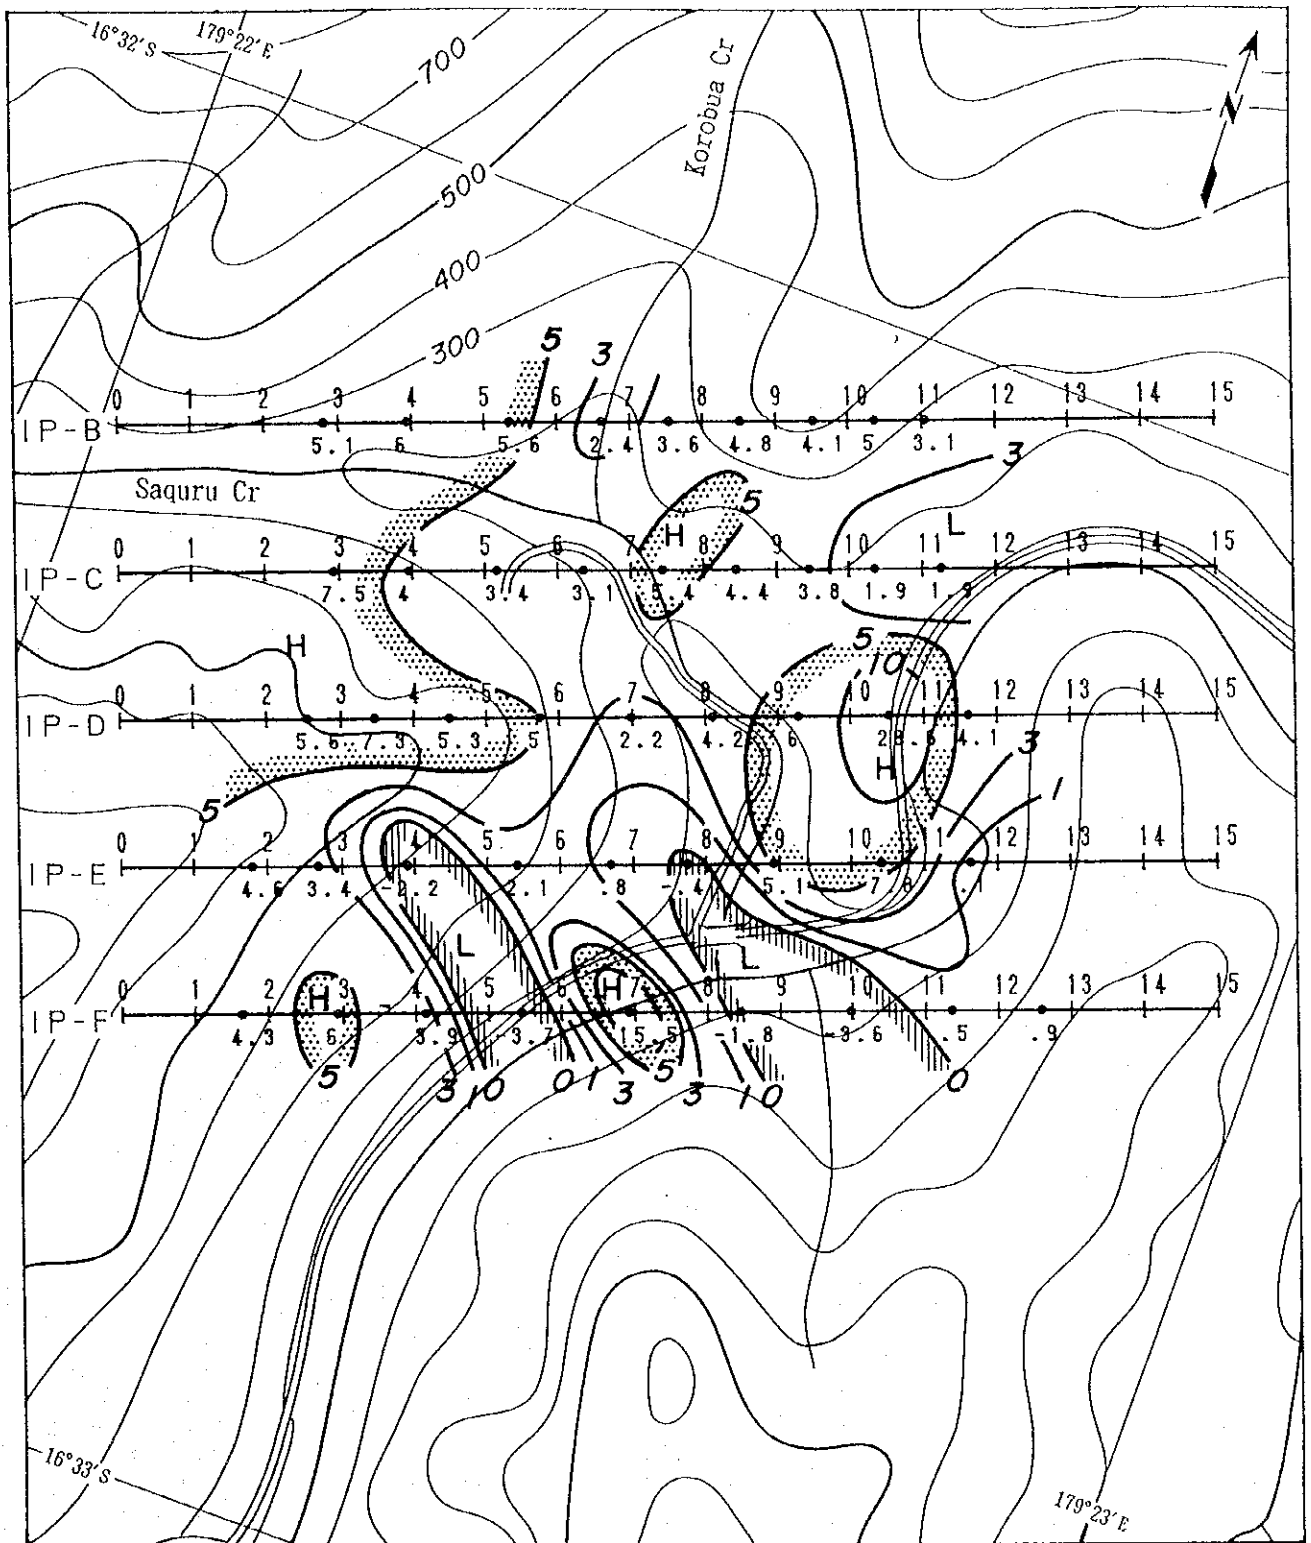 16°32'S
179°22'E
700
Korobua Cr
N
500
400
300
5
3
0 1 2 3 4 5 6 7 8 9 10 11 12 13 14 15
IP-B
5.1 6 5.6 2.4 3.6 4.8 4.1 5 3.1
3
Saquru Cr
5
H
L
0 1 2 3 4 5 6 7 8 9 10 11 12 13 14 15
IP-C
7.5 4 3.4 3.1 5.4 4.4 3.8 1.9 1.9
H
5
10
0 1 2 3 4 5 6 7 8 9 10 11 12 13 14 15
IP-D
5.6 7.3 5.3 5 2.2 4.2 6 4.1
H
3
5
1
0 1 2 3 4 5 6 7 8 9 10 11 12 13 14 15
IP-E
4.6 3.4 -2.2 2.1 .8 -.4 5.1 7 .1
L
L
H
H
0 1 2 3 4 5 6 7 8 9 10 11 12 13 14 15
IP-F
4.3 6 3.9 -3.7 15.5 -1.8 -3.6 .5 .9
5
3 1 0 0 1 3 5 3 1 0 0
16°33'S
179°23'E